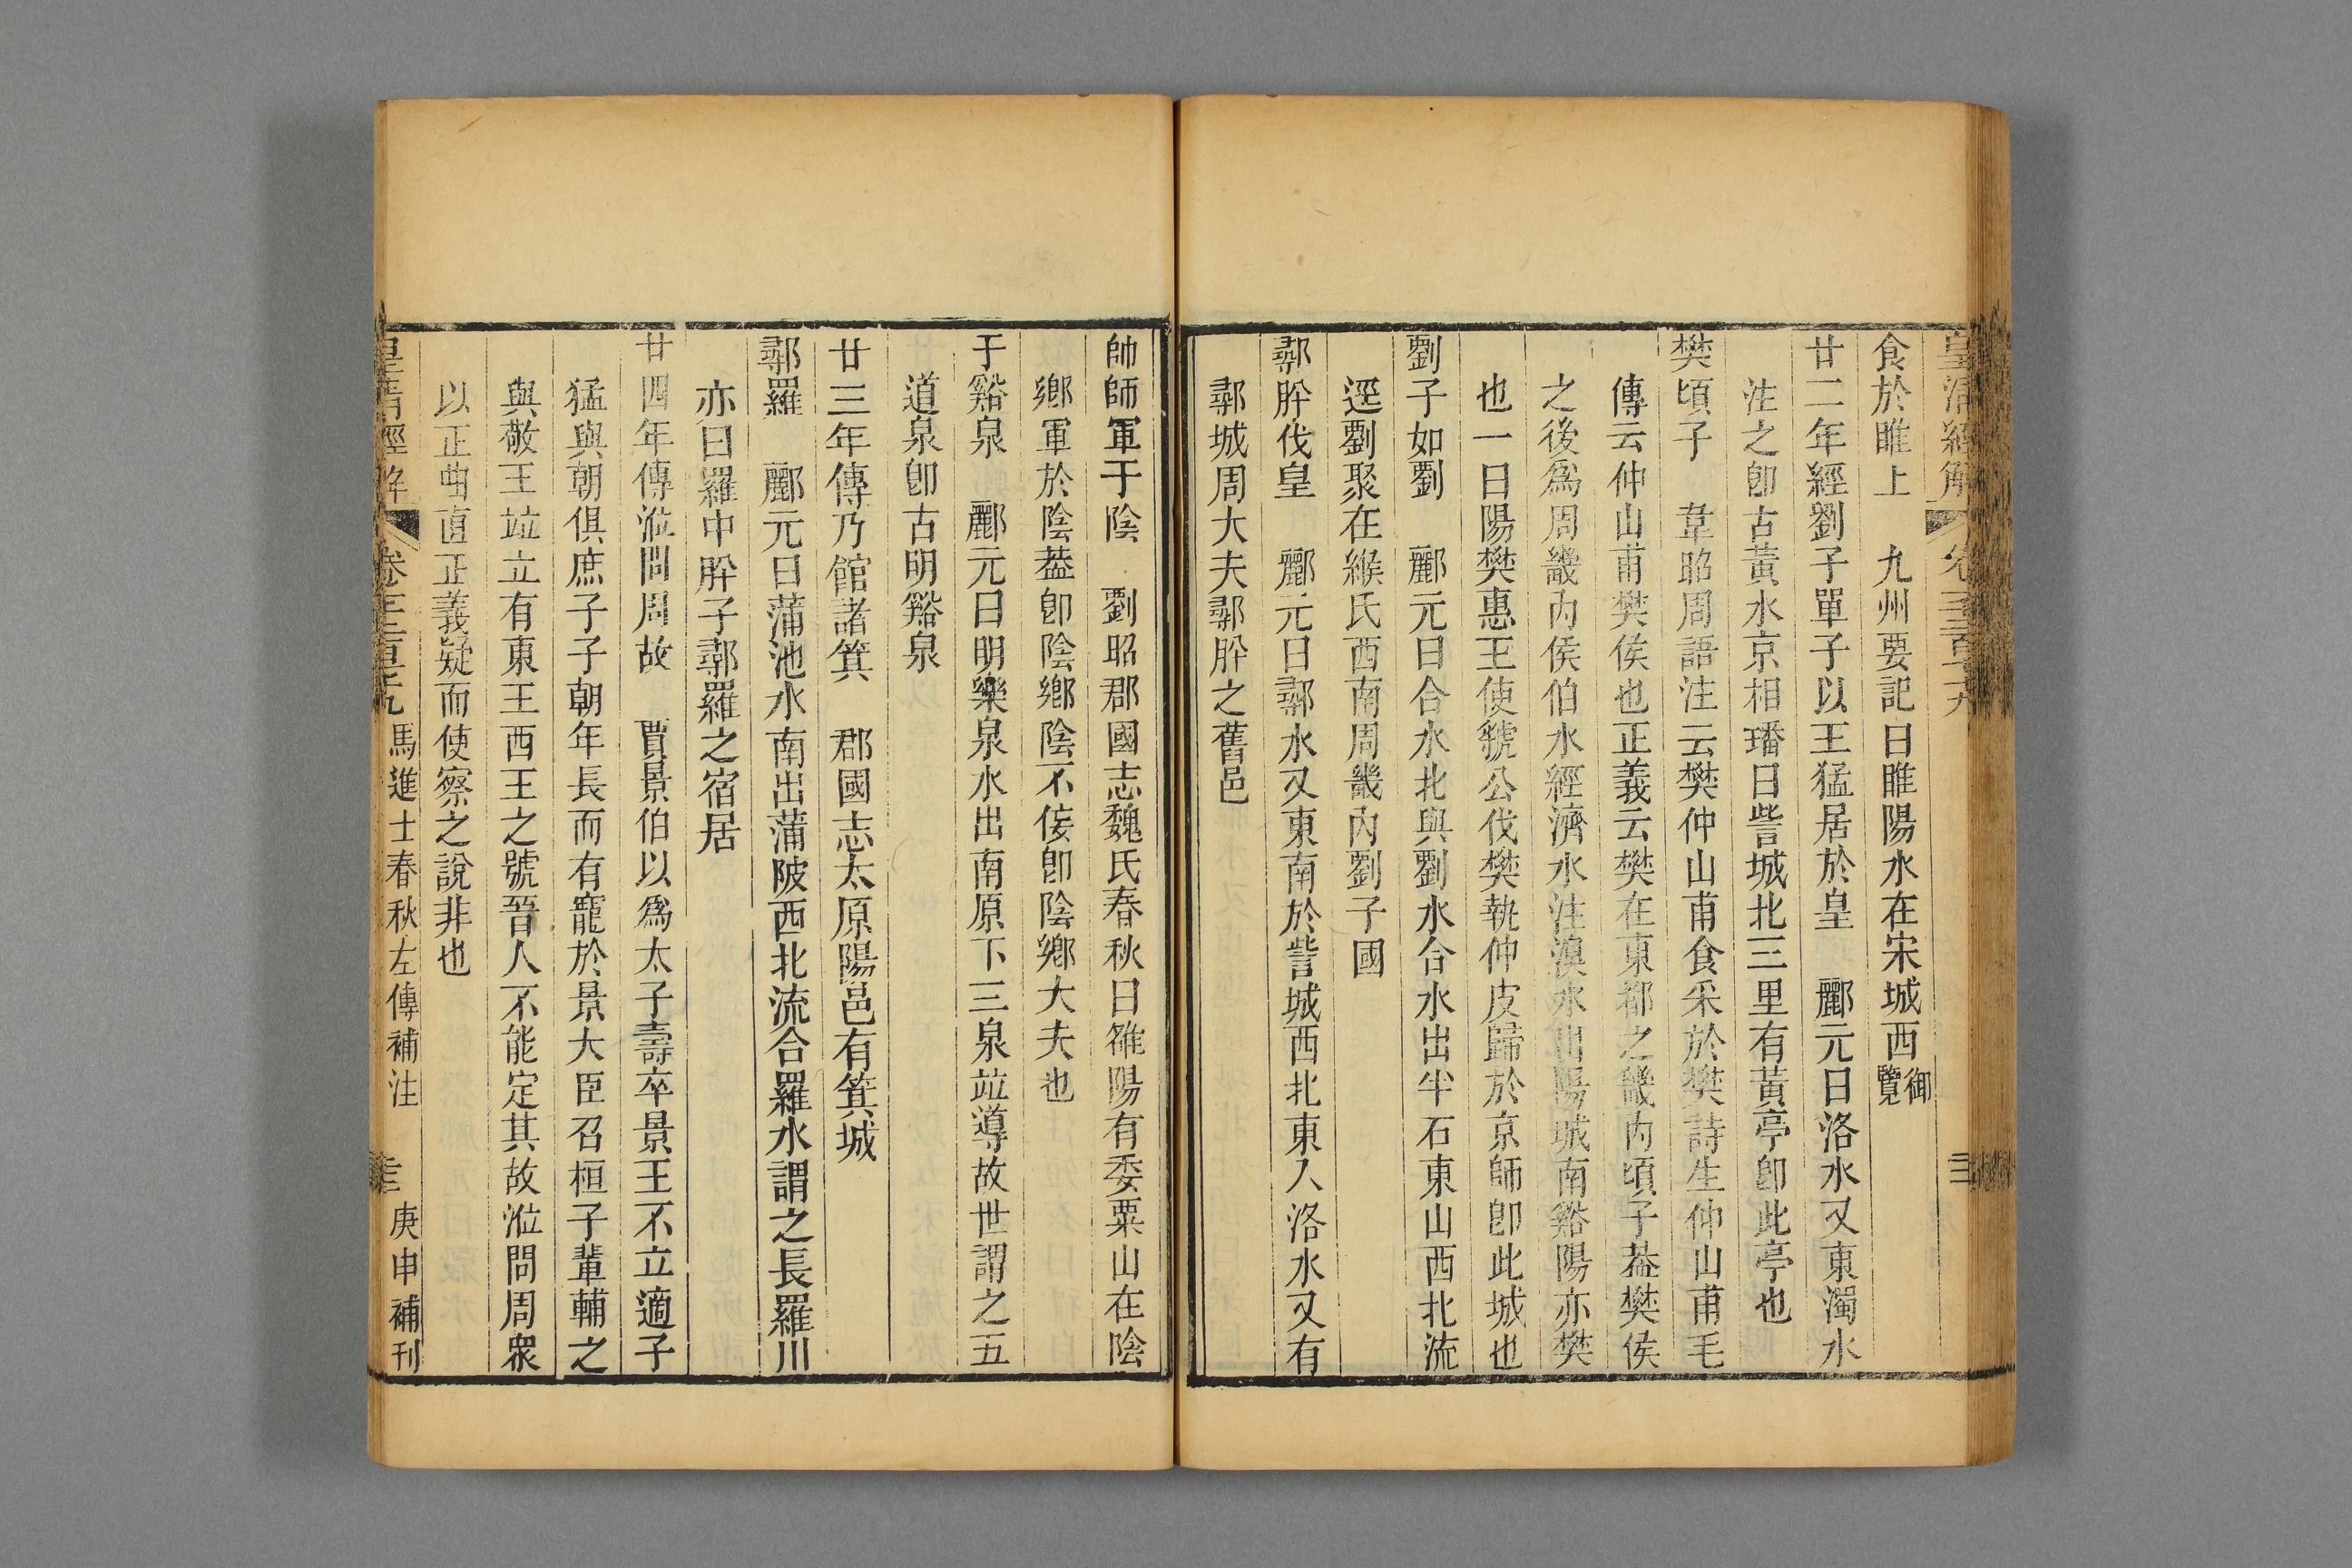 皇清經解 卷 三
食於睢上 九州要記曰睢陽水在宋城西御覽
廿二年經劉子單子以王猛居於皇 酈元曰洛水又東濁水
注之卽古黃水京相璠曰訾城北三里有黃亭卽此亭也
樊頃子 韋昭周語注云樊仲山甫食采於樊詩生仲山甫毛
傳云仲山甫樊侯也正義云樊在東都之畿內頃子葢樊侯
之後爲周畿內侯伯水經濟水注溴水出陽城南谿陽亦樊
也一曰陽樊惠王使虢公伐樊執仲皮歸於京師卽此城也
劉子如劉 酈元曰合水北與劉水合水出半石東山西北流
逕劉聚在緱氏西南周畿內劉子國
鄩肸伐皇 酈元曰鄩水又東南於訾城西北東入洛水又有
鄩城周大夫鄩肸之舊邑
帥師軍于陰 劉昭郡國志魏氏春秋曰雒陽有委粟山在陰
鄉軍於陰葢卽陰鄉陰不佞卽陰鄉大夫也
于谿泉 酈元曰明樂泉水出南原下三泉竝導故世謂之五
道泉卽古明谿泉
廿三年傳乃館諸箕 郡國志太原陽邑有箕城
鄩羅 酈元曰蒲池水南出蒲陂西北流合羅水謂之長羅川
亦曰羅中肸子鄩羅之宿居
廿四年傳涖問周故 賈景伯以爲太子壽卒景王不立適子
猛與朝俱庶子子朝年長而有寵於景大臣召桓子輩輔之
與敬王竝立有東王西王之號晉人不能定其故涖問周衆
以正曲直正義疑而使察之說非也
皇清經解 卷 馬進士春秋左傳補注 庚申補刊